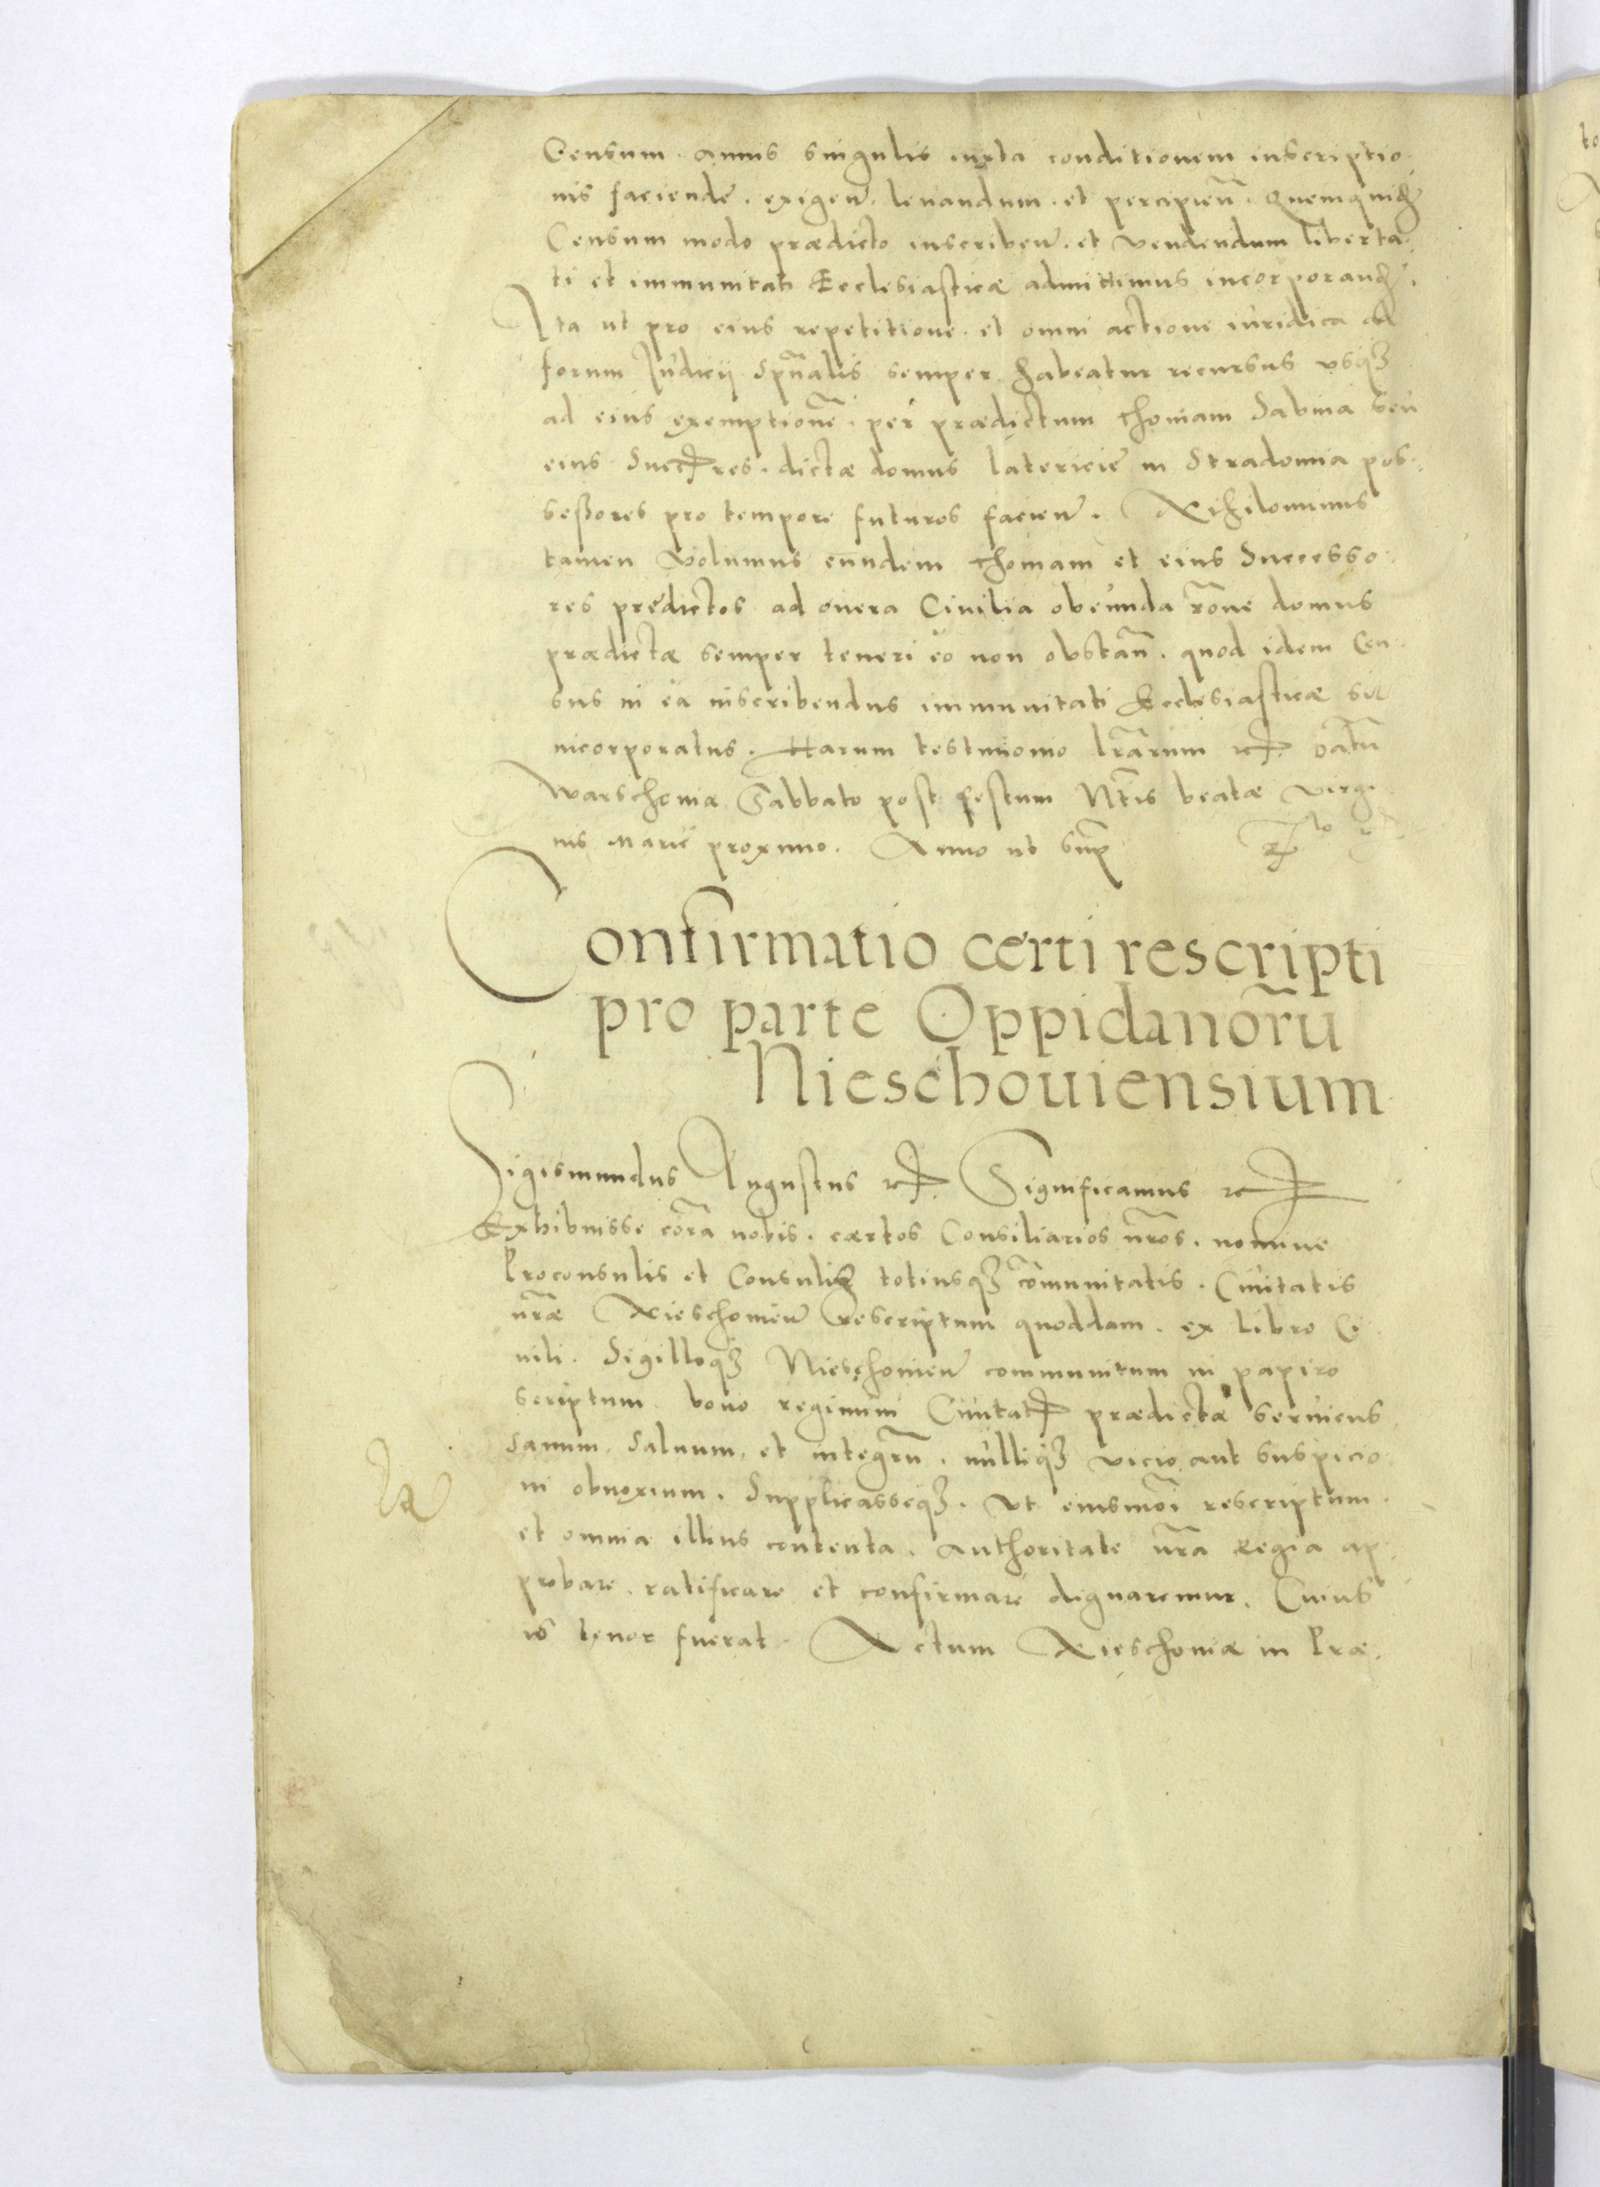 Censum annis singulis iuxta conditionem inscriptio
nis faciende. exigen. leuandum. et percipien̄. Quemquidē
Censum modo prædicto inscriben. et vendendum liberta
ti et immunitati Ecclesiasticæ admittimus incorporand.
Ita ut pro eius repetitione. et omni actione iuridica ad
forum Judicij Spūalis semper habeatur recursus usq3
ad eius exemptionē. per prædictum Thomam Sabina seu
eius Succres. dictæ domus latericie in Stradomia pos
seßores pro tempore futuros facien. Nihilominus
tamen volumus eundem Thomam et eius Successo
res predictos ad onera Ciuilia obeunda rōne domus
prædictæ semper teneri eo non obstan̄. quod idem Cen
sus in ea inscribendus immunitati Ecclesiasticæ sit
incorporatus. Harum testimonio lrārum etc. Datū
Warschouiæ Sabbato post festum Ntīs beatæ Virgi
nis Marie proximo. Anno ut supra
Confirmatio certi rescripti
pro parte Oppidanorū
Nieschouiensium
Sigismundus Augustus etc. Significamus etc
Exhibuisse corā nobis. cærtos Consiliarios nrōs. nomine
Proconsulis et Consulū totiusq3 cōmunitatis. Ciuitatis
nrāe Nieschouien Rescriptum quoddam. ex libro Ci
uili. Sigilloq3 Nieschouien communitum in papiro
scriptum bono regimini Ciuitatis prædictæ seruiens
Sanum. Saluum. et integrū. nulliq3 vicio aut suspicio
ni obnoxium. Supplicasseq3. Ut eiusmōi rescriptum.
et omnia illius contenta. authoritate nrā Regia ap
probare. ratificare et confirmare dignaremur. Cuius
is tenor fuerat. Actum Nieschouiæ in Præ